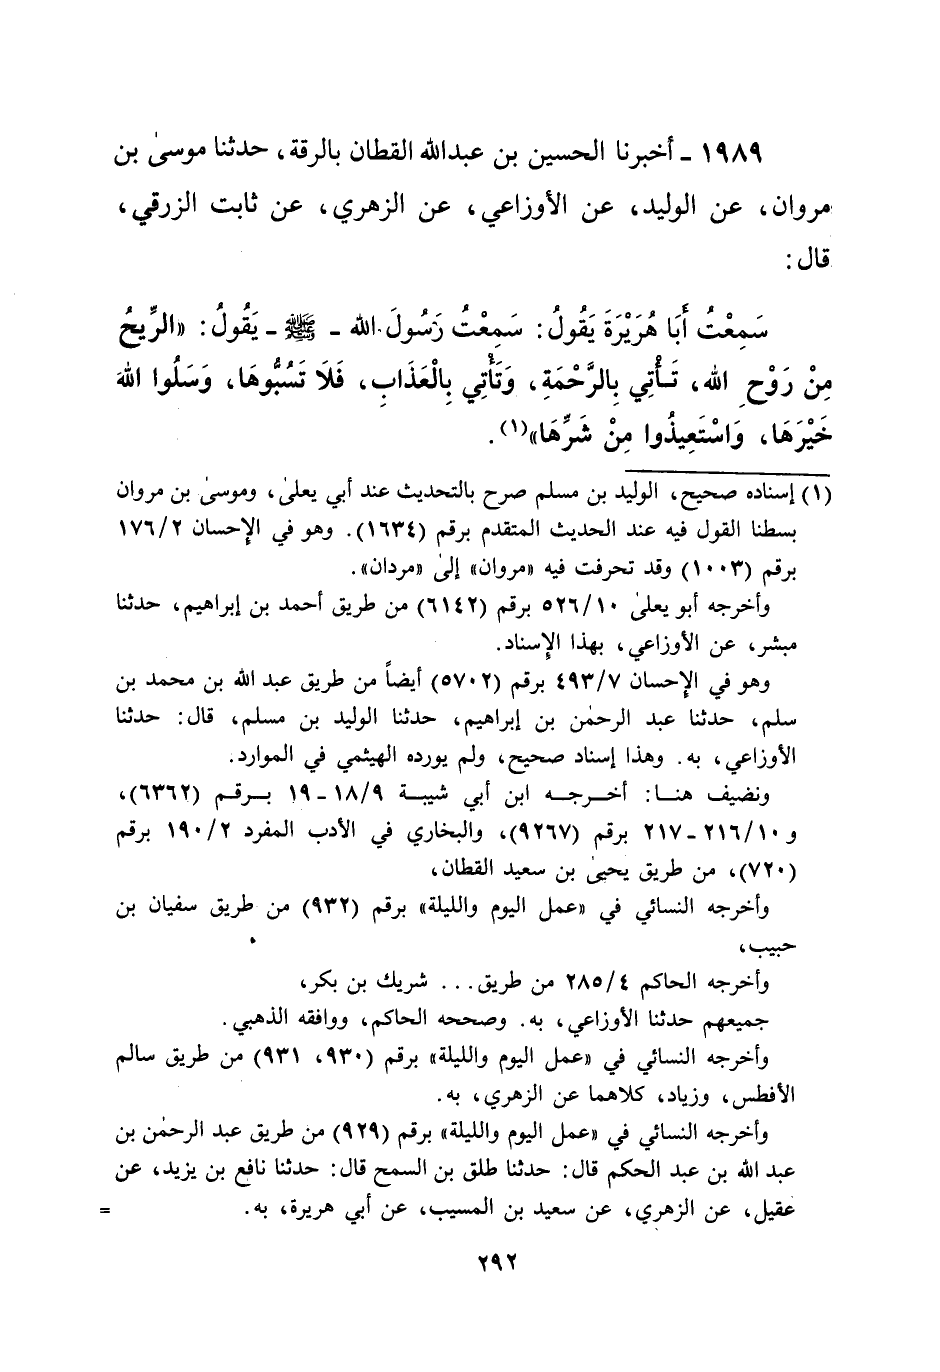 ١٩٨٩ ـ أخبرنا الحسين بن عبدالله القطان بالرقة، حدثنا موسىٰ بن
مروان، عن الوليد، عن الأوزاعي، عن الزهري، عن ثابت الزرقي،
قال:
سَمِعْتُ أَبَا هُرَيْرَةَ يَقُولُ: سَمِعْتُ رَسُولَ الله ـ ﷺ ـ يَقُولُ: «الرِّيحُ
مِنْ رَوْحِ الله، تَأْتِي بِالرَّحْمَةِ، وَتَأْتِي بِالْعَذَابِ، فَلَا تَسُبُّوهَا، وَسَلُوا اللهَ
خَيْرَهَا، وَاسْتَعِيذُوا مِنْ شَرِّهَا»(١).
(١) إسناده صحيح، الوليد بن مسلم صرح بالتحديث عند أبي يعلىٰ، وموسىٰ بن مروان
بسطنا القول فيه عند الحديث المتقدم برقم (١٦٣٤). وهو في الإحسان ١٧٦/٢
برقم (١٠٠٣) وقد تحرفت فيه «مروان» إلىٰ «مردان».
وأخرجه أبو يعلىٰ ٥٢٦/١٠ برقم (٦١٤٢) من طريق أحمد بن إبراهيم، حدثنا
مبشر، عن الأوزاعي، بهذا الإسناد.
وهو في الإحسان ٤٩٣/٧ برقم (٥٧٠٢) أيضاً من طريق عبد الله بن محمد بن
سلم، حدثنا عبد الرحمٰن بن إبراهيم، حدثنا الوليد بن مسلم، قال: حدثنا
الأوزاعي، به. وهذا إسناد صحيح، ولم يورده الهيثمي في الموارد.
ونضيف هنا: أخرجه ابن أبي شيبة ١٨/٩ ـ ١٩ برقم (٦٣٦٢)،
و ٢١٦/١٠ ـ ٢١٧ برقم (٩٢٦٧)، والبخاري في الأدب المفرد ١٩٠/٢ برقم
(٧٢٠)، من طريق يحيىٰ بن سعيد القطان،
وأخرجه النسائي في «عمل اليوم والليلة» برقم (٩٣٢) من طريق سفيان بن
حبيب،
وأخرجه الحاكم ٢٨٥/٤ من طريق... شريك بن بكر،
جميعهم حدثنا الأوزاعي، به. وصححه الحاكم، ووافقه الذهبي.
وأخرجه النسائي في «عمل اليوم والليلة» برقم (٩٣٠، ٩٣١) من طريق سالم
الأفطس، وزياد، كلاهما عن الزهري، به.
وأخرجه النسائي في «عمل اليوم والليلة» برقم (٩٢٩) من طريق عبد الرحمٰن بن
عبد الله بن عبد الحكم قال: حدثنا طلق بن السمح قال: حدثنا نافع بن يزيد، عن
عقيل، عن الزهري، عن سعيد بن المسيب، عن أبي هريرة، به. =
٢٩٢